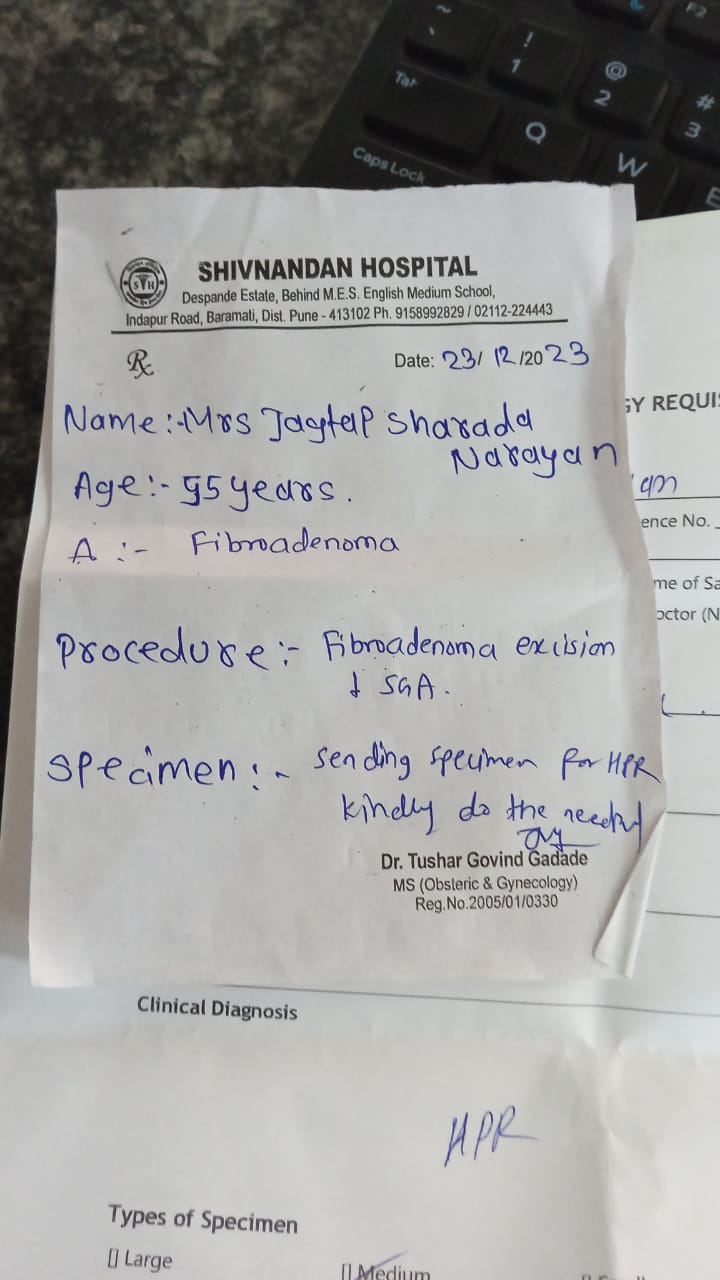 ~
`
!
1
@
2
#
3
F2
Tab
Q
W
E
Caps Lock
SVH
SHIVNANDAN HOSPITAL
Despande Estate, Behind M.E.S. English Medium School,
Indapur Road, Baramati, Dist. Pune - 413102 Ph. 9158992829 / 02112-224443
Rx
Date: 23/ 12 /2023
Name :- Mrs Jagtap Sharada
Narayan
Age :- 55 years.
A :- Fibroadenoma
Procedure :- Fibroadenoma excision
↓ SGA.
Specimen :- Sending specimen for HPR
kindly do the needful
Dr. Tushar Govind Gadade
MS (Obsleric & Gynecology)
Reg.No.2005/01/0330
GY REQUI
am
ence No.
me of Sa
octor (N
Clinical Diagnosis
HPR
Types of Specimen
[] Large
[] Medium